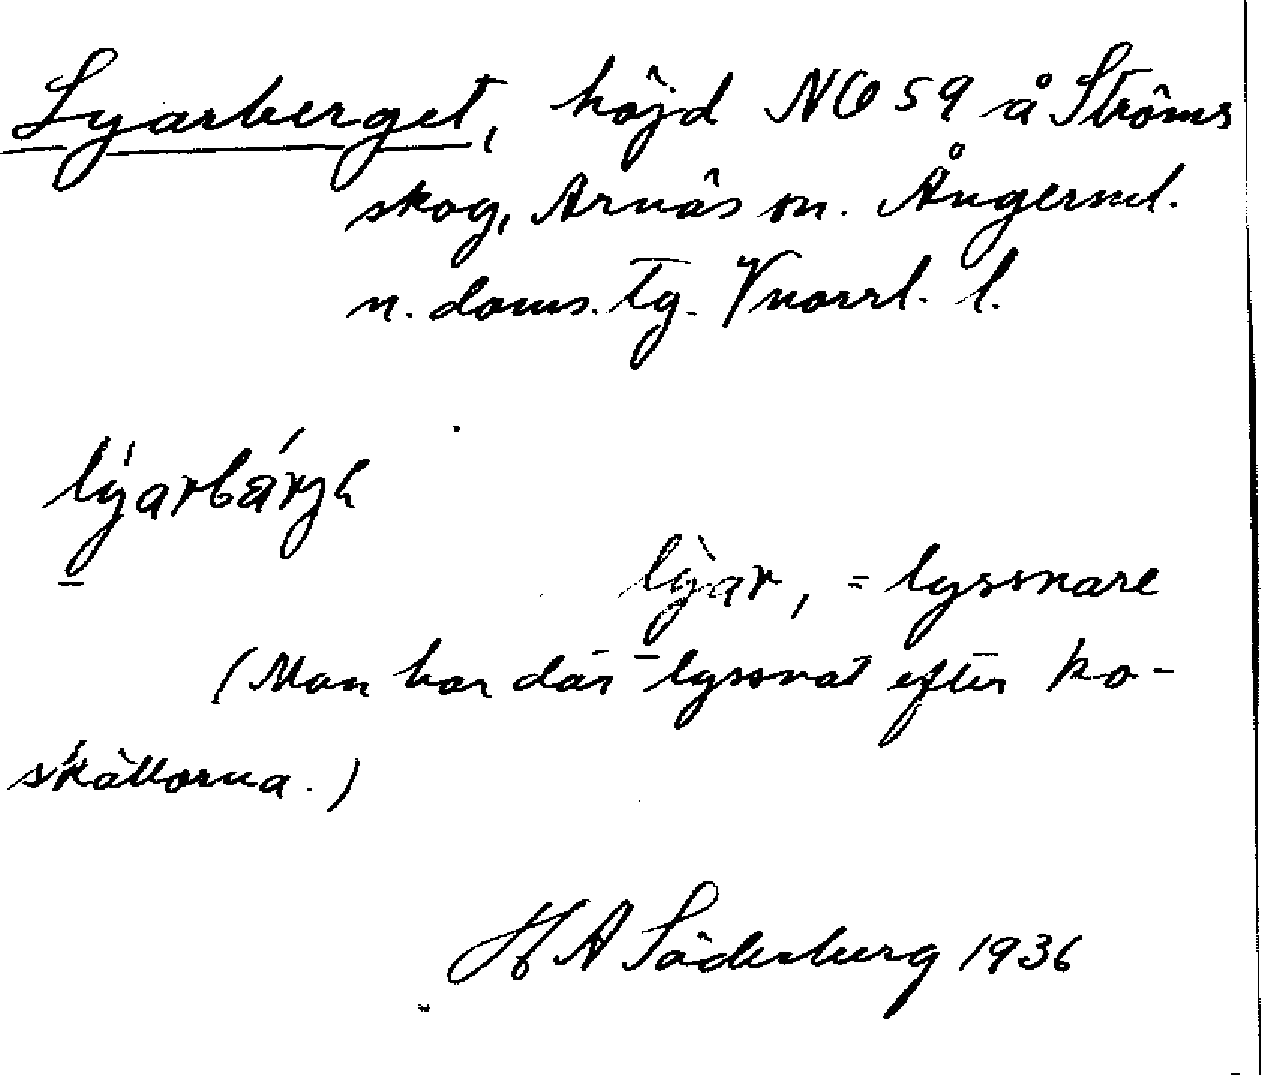 Lyarberget, höjd NO 59 å Ströms
skog, Arnäs sn. Ångerml.
n. doms. tg. Vnorrl. l.
lýarbárjh
lỳar, = lyssnare
(Man har där lyssnat efter ko-
skällorna.)
H A Söderberg 1936